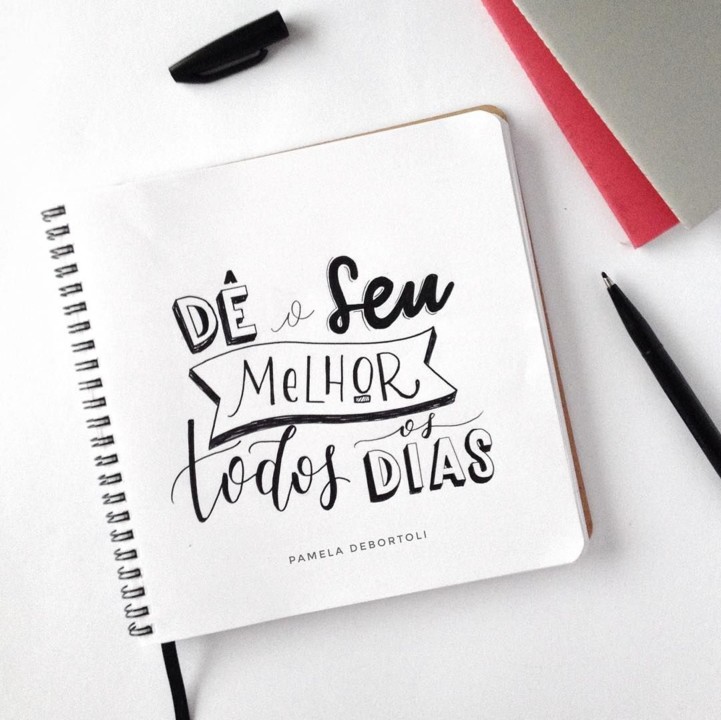 DÊ o Seu
MeLHOR
todos os DIAS
PAMELA DEBORTOLI